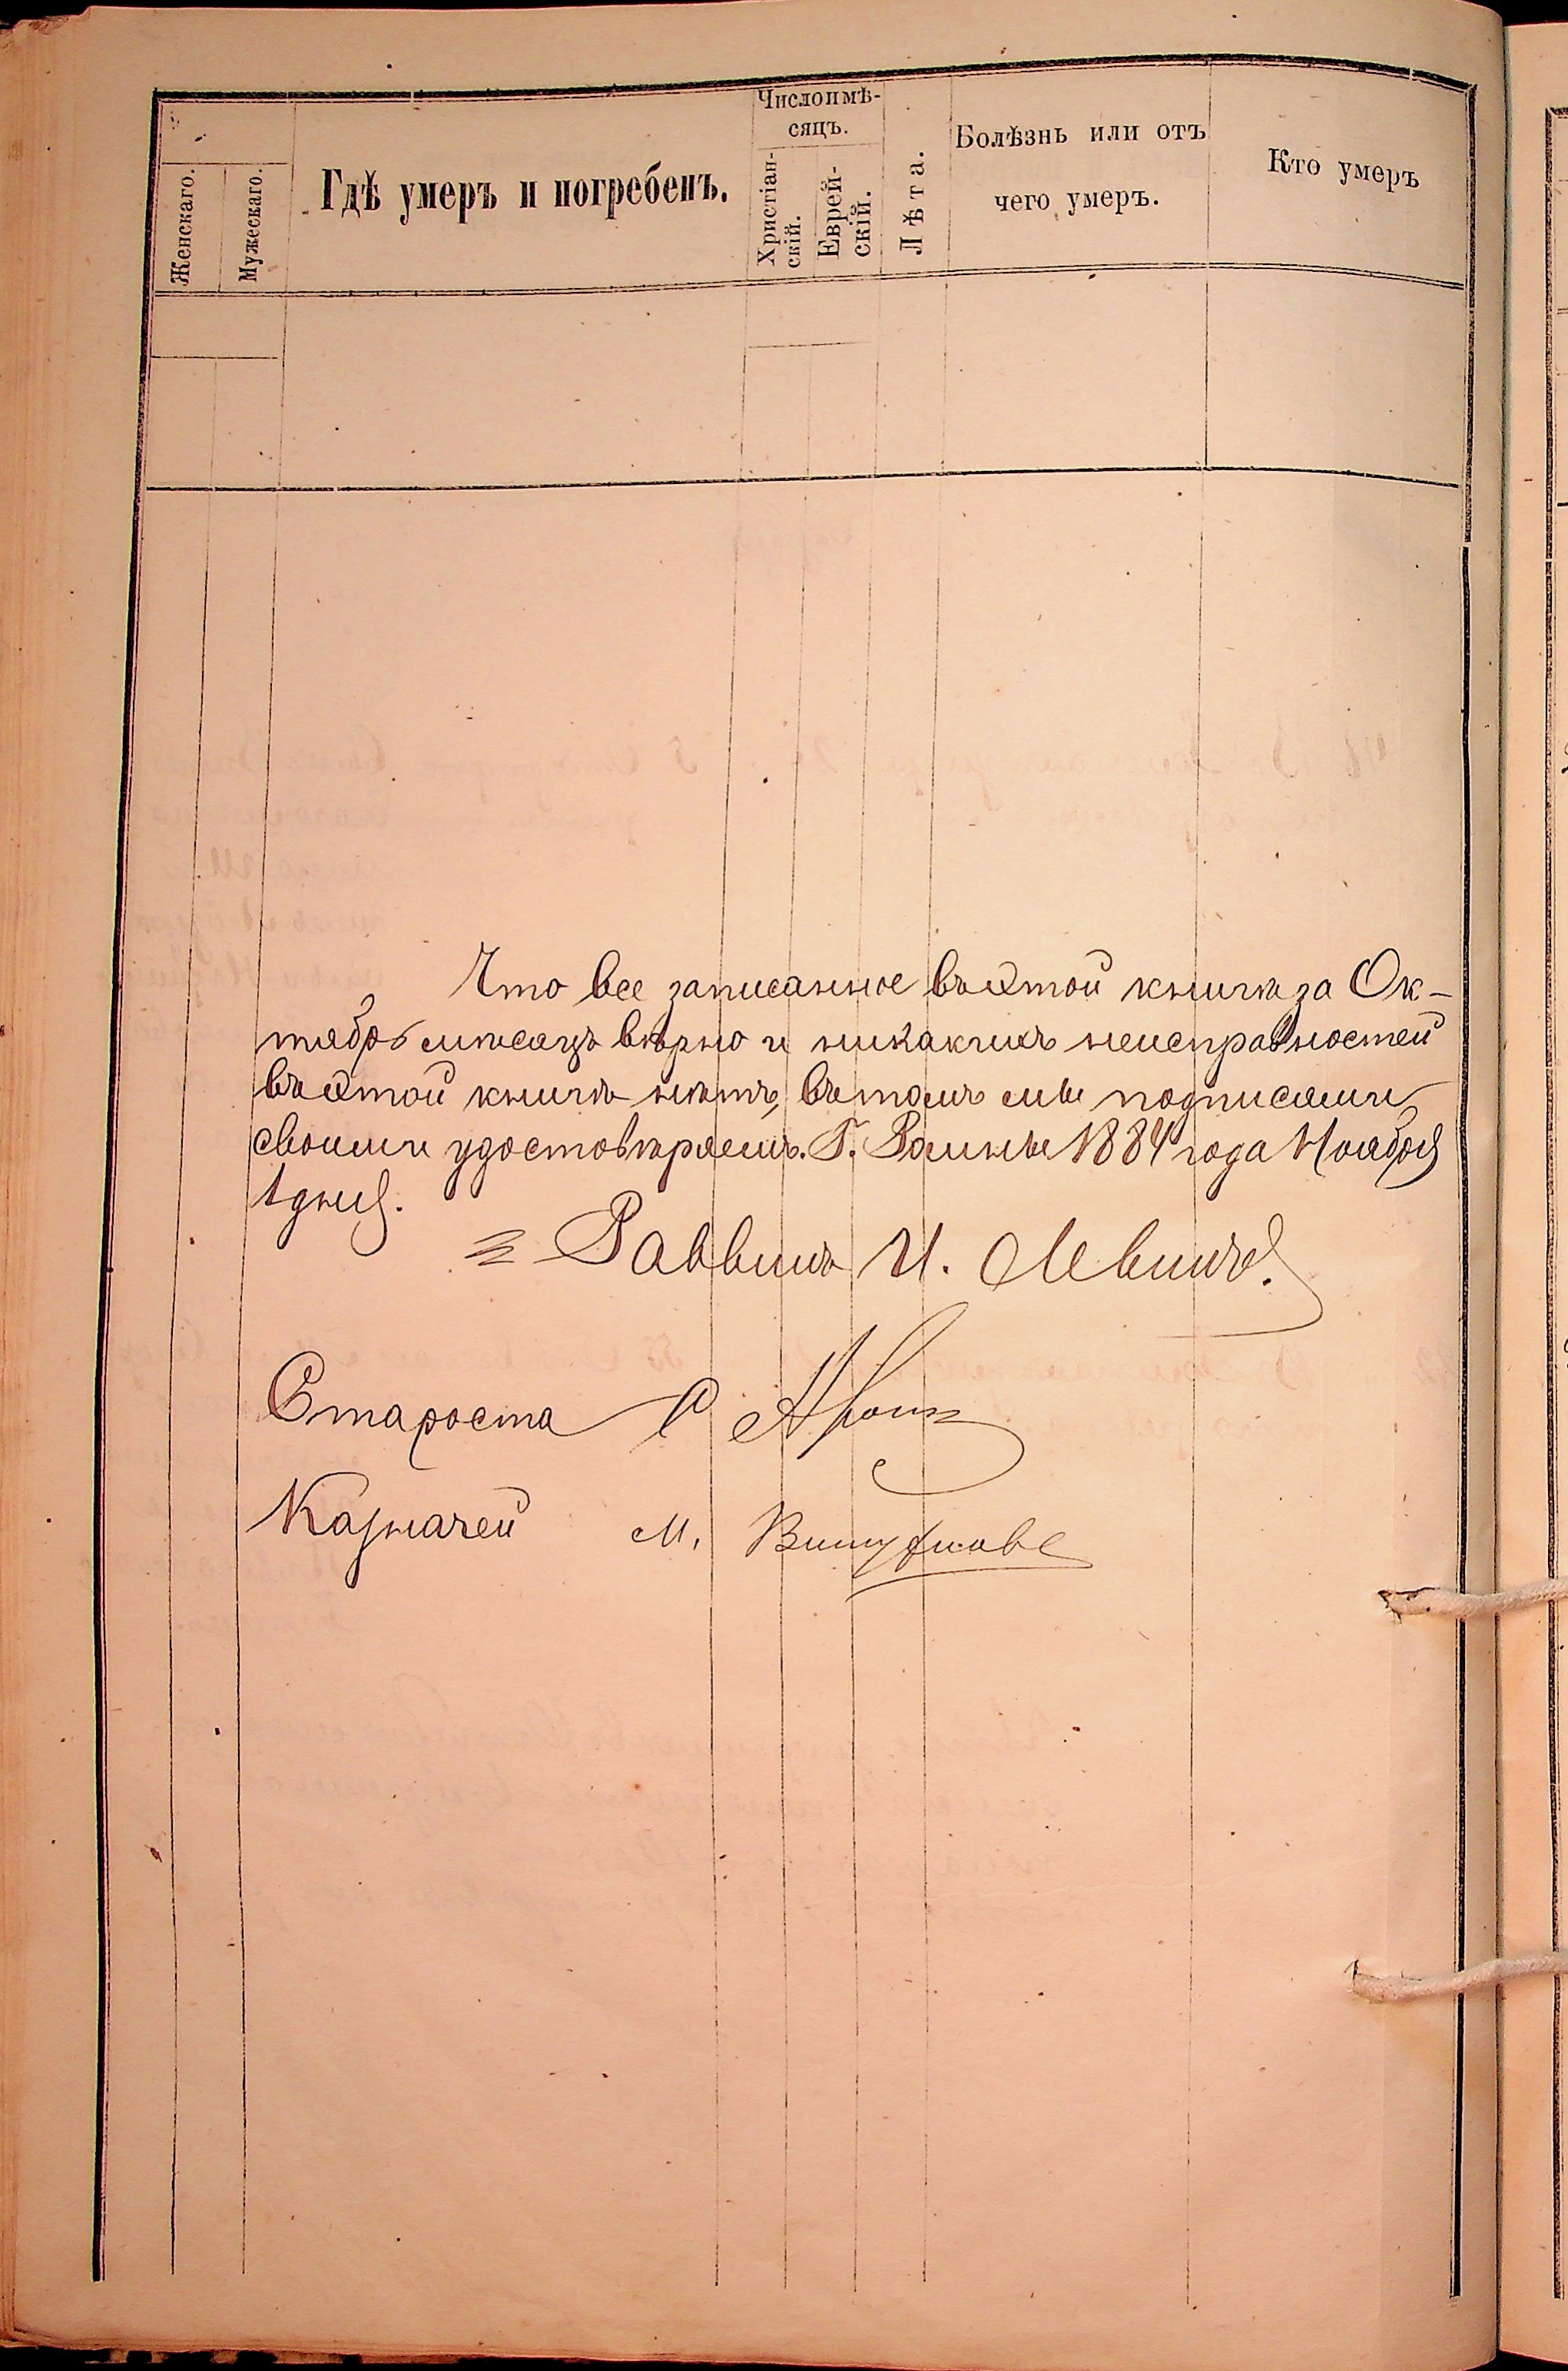 Числоимѣ-
сяцъ.
Женскаго.
Мужескаго.
Гдѣ умеръ и погребенъ.
Христіан-
скій.
Еврей-
скій.
Лѣта.
Болѣзнь или отъ
чего умеръ.
Кто умеръ
Что все записанное въ этой книгѣ за Ок-
тябрь мѣсяцъ вѣрно и никакихъ неисправностей
въ этой книгѣ нѣтъ, въ томъ мы подписями
своими удостовѣряемъ. Г. Ромны 1884 года Ноября
1 дня.
Раввинъ И. Левинъ.
Староста
Казначей М.